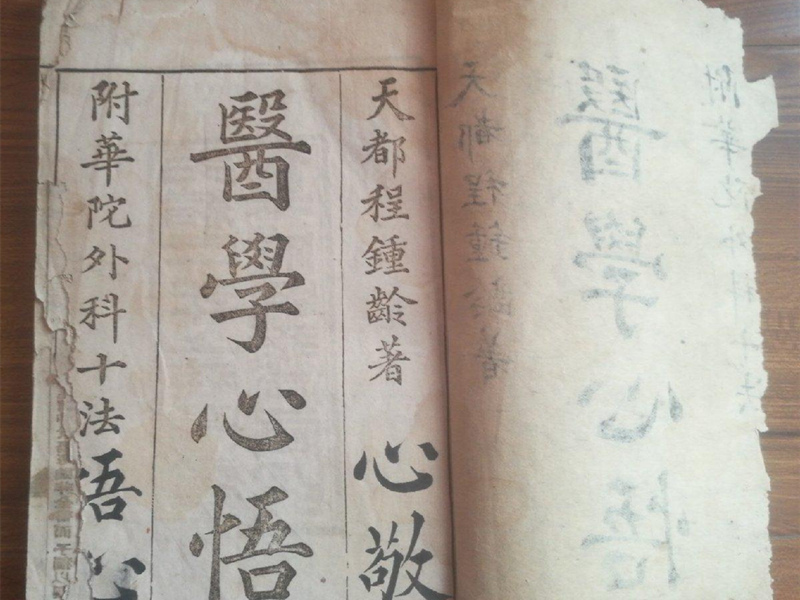 天都程鍾齡著
心敬
醫學心悟
附華陀外科十法
悟心